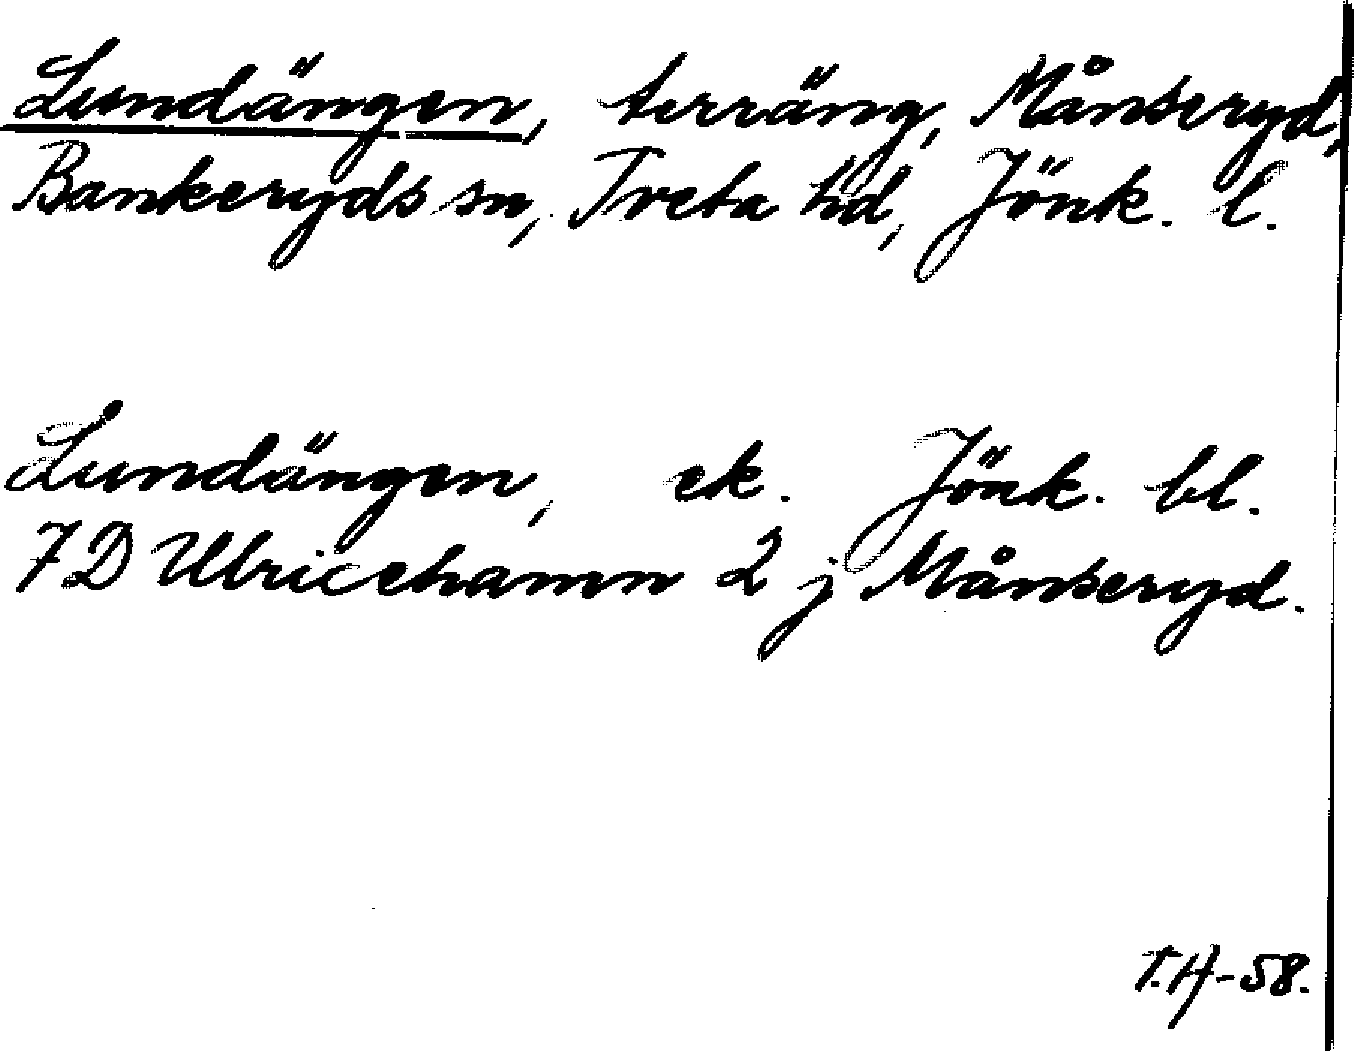 Lundängen, terräng, Månseryd,
Bankeryds sn, Tveta hd, Jönk. l.
Lundängen, ek. Jönk. bl.
7 D Ulricehamn 2 j Månseryd.
T.H-58.